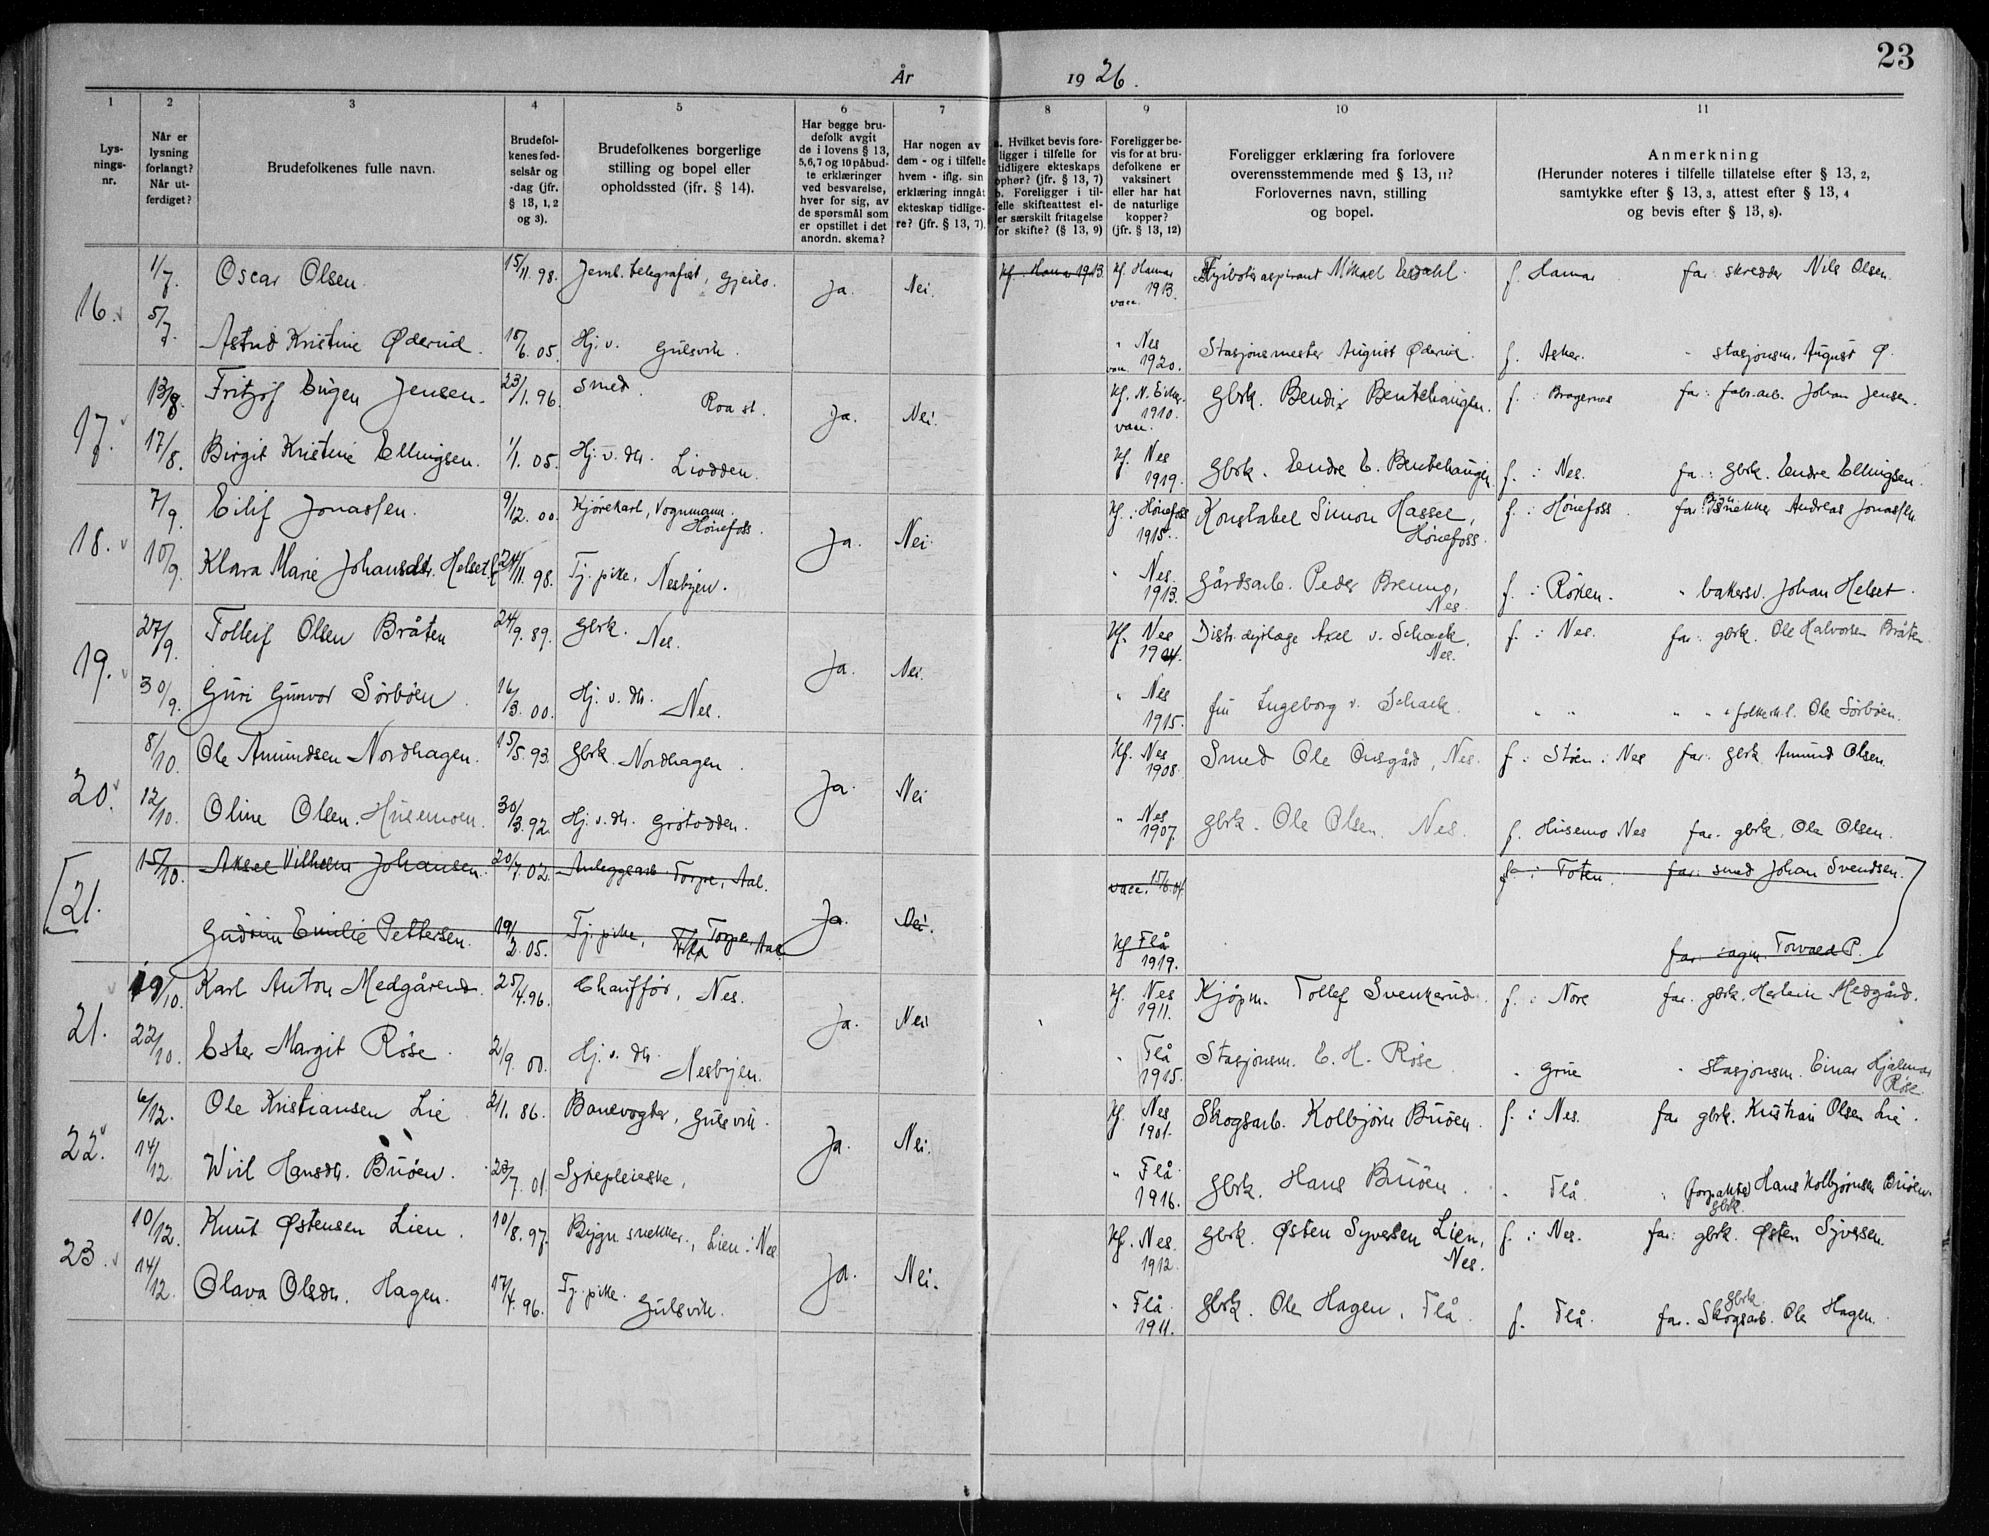 23
År 1926.
1 2 3 4 5 6 7 8 9 10 11
Lysningsnr.
Når er lysning forlangt? Når utferdiget?
Brudefolkenes fulle navn.
Brudefolkenes fødselsår og -dag (jfr. § 13, 1, 2 og 3).
Brudefolkenes borgerlige stilling og bopel eller opholdssted (jfr. § 14).
Har begge brudefolk avgit de i lovens § 13, 5, 6, 7 og 10 påbudte erklæringer ved besvarelse, hver for sig, av de spørsmål som er opstillet i det anordn. skema?
Har nogen av dem - og i tilfelle hvem - iflg. sin erklæring inngåt ekteskap tidligere? (jfr. § 13, 7).
a. Hvilket bevis foreligger i tilfelle for tidligere ekteskaps ophør? (jfr. § 13, 7) b. Foreligger i tilfelle skifteattest eller særskilt fritagelse for skifte? (§ 13, 9)
Foreligger bevis for at brudefolkene er vaksinert eller har hat de naturlige kopper? (jfr. § 13, 12)
Foreligger erklæring fra forlovere overensstemmende med § 13, 11? Forlovernes navn, stilling og bopel.
Anmerkning (Herunder noteres i tilfelle tillatelse efter § 13, 2, samtykke efter § 13, 3, attest efter § 13, 4 og bevis efter § 13, 8).
16. 1/7. Oscar Olsen. 15/11. 98. Jernb. telegrafist, Gjeilo. Ja. Nei. kf. Hamar 1913. kf. Hamar 1913. vacc. Mikael f. Hamar far: skredder Nils Olsen.
5/7. Astrid Kristine Øderud. 15/6. 05. Hj. v. Gulsvik. " Nes 1920. Stasjonsmester August Øderud. f. Asker. " stasjonsm. August Ø.
17. 13/8. Fritzof Eugen Jensen. 23/1. 96. Smed. Roa st. Ja. Nei. kf. N. Eiker. 1910. vacc. Gbrk. Bendix Bentehaugen. f. : Bragernes far: fabr.arb. Johan Jensen.
17/8. Birgit Kristine Ellingsen. 1/1. 05. Hj. v. dtr. Liodden. kf. Nes 1919. Gbrk. Endre E. Bentehaugen f. : Nes. fa: gbrk. Endre Ellingsen.
18. 7/9. Eilif Jonassen. 9/12. 00. Kjørekarl, Vognmann. Hønefoss. Ja. Nei kf. : Hønefoss 1915. Konstabel Simon Hassel, Hønefoss. f. : Hønefoss. far: Andreas Jonassen
10/9. Klara Marie Johansdtr. Helset 24/11. 98. Tj. pike, Nesbyen. " Nes. 1913. Gårdsarb. Peder Brenno, Nes. f. : Røiken. " bakersv. Johan Helset.
19. 27/9. Tolleif Olsen Bråten 24/9. 89. Gbrk. Nes. Ja. Nei. kf. Nes 1904. Distr. dyrlæge Axel v. Schack, Nes. f. : Nes. far: gbrk. Ole Halvorsen Bråten
30/9. Guri Gunvor Sørbøen. 16/3. 00. Hj. v. dtr. Nes. " Nes 1915. fru Ingeborg v. Schack. " " " " folkesk.l. Ole Sørbøen.
20. 8/10. Ole Amundsen Nordhagen. 15/5. 93. Gbrk. Nordhagen. Ja. Nei kf. Nes 1908. Smed Ole Onsgård, Nes. f : Støen : Nes far: gbrk Amund Olsen.
12/10. Oline Olsen. Husemoen. 30/3. 92. Hj. v. dtr. Grøtodden. " Nes 1907. gbrk. Ole Olsen. Nes. f. Husemo Nes far. gbrk. Ole Olsen.
21. 15/10. Aksel Vilhelm Johansen. 20/7. 02. Anleggsarb. Torpe, Aal. vacc. 15/6. 04. f. : Toten. far: smed Johan Svendsen.
Gudrun Emilie Pettersen. 19/2. 05. Tj. pike, Flå Torpe, Aal Ja. Nei. kf Flå 1919. far: sagm. Torvald P.
21. 19/10. Karl Anton Medgården. 25/4. 96. Chauffør, Nes. Ja. Nei kf. Nes 1911. Kjøpm. Tollef Svenkerud. f. : Nore far. gbrk. Herleik Medgård.
22/10. Ester Margit Røse. 2/9. 00. Hj. v. dtr. Nesbyen. " Flå 1915. Stasjonsm. E. H. Røse " Grue " stasjonsm. Einar Hjalmar Røse.
22. 6/12. Ole Kristiansen Lie 2/1. 86. Banevogter, Gulsvik. Ja. Nei. kf. Nes 1901. Skogsarb. Kolbjørn Buøen. f. : Nes. far gbrk. Kristian Olsen Lie.
14/12. Hansdtr. Buøen. 7. 01. Sykepleierske, " Flå 1916. Gbrk. Hans Buøen. " Flå. " (forpakter) Hans Kolbjørnsen Buøen. gbrk.
23. 10/12. Knut Østensen Lien. 10/8. 97. Bygn. snekker, Lien : Nes Ja. Nei. kf. Nes. 1912. Gbrk. Østen Syversen Lien, Nes. f. : Nes. far: gbrk. Østen Syversen.
14/12. Olava Olsdtr. Hagen. 17/4. 96. Tj. pike. Gulsvik. " Flå. 1911. Gbrk. Ole Hagen, Flå. f. Flå. far. gbrk. Skogsarb. Ole Hagen.